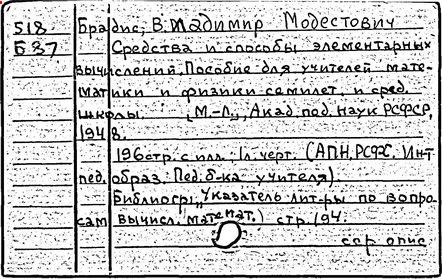 518 Брадис, Владимир Модестович
Б 87 Средства и способы элементарных
вычислений. Пособие для учителей мате-
матики и физики семилет. и сред.
школы. М.-Л., Акад. пед. наук РСФСР,
1948.
196 стр. с илл. 1 л. черт. (АПН РСФСР, Инт
пед. образ. Пед. б-ка учителя).
Библиогр. „Указатель лит-ры по вопро-
сам вычисл. математ.) стр. 194.
сор опис